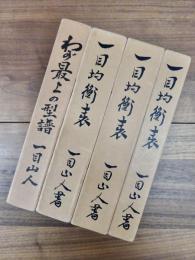 わが最上の型譜
一目山人
一目均衡表
一目山人著
一目均衡表
一目山人著
一目均衡表
一目山人著